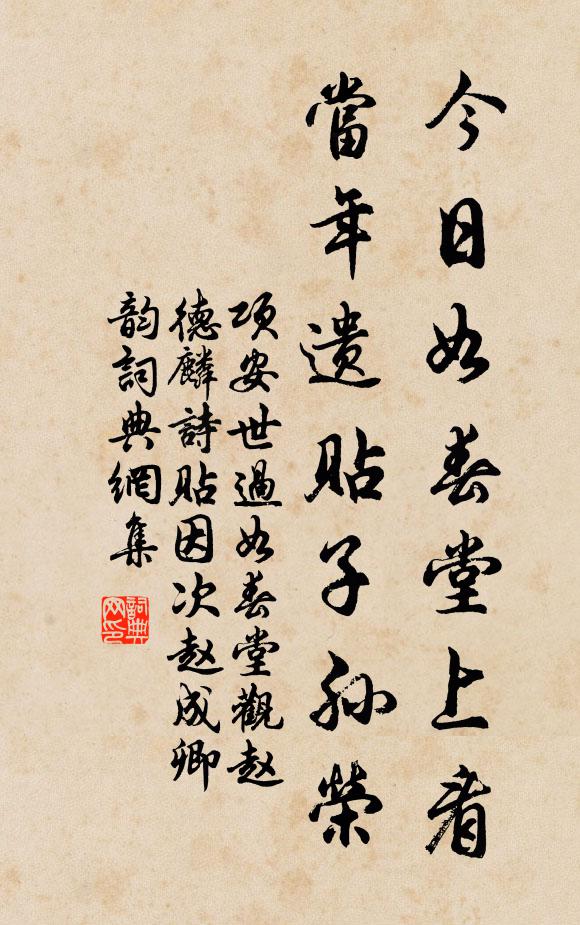 今日如春堂上看
當年遗貼子孙榮
项安世過如春堂觀赵
德麟詩貼因次赵成卿
韵詞典網集
詞典
网印